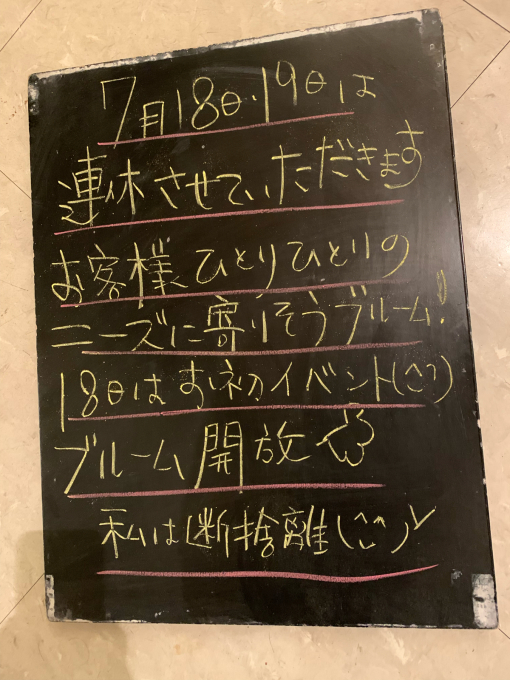 7月18日・19日は
連休させていただきます
お客様ひとりひとりの
ニーズに寄りそうブルーム!
18日はお初イベント(^^)
ブルーム開放
私は断捨離(^^)v